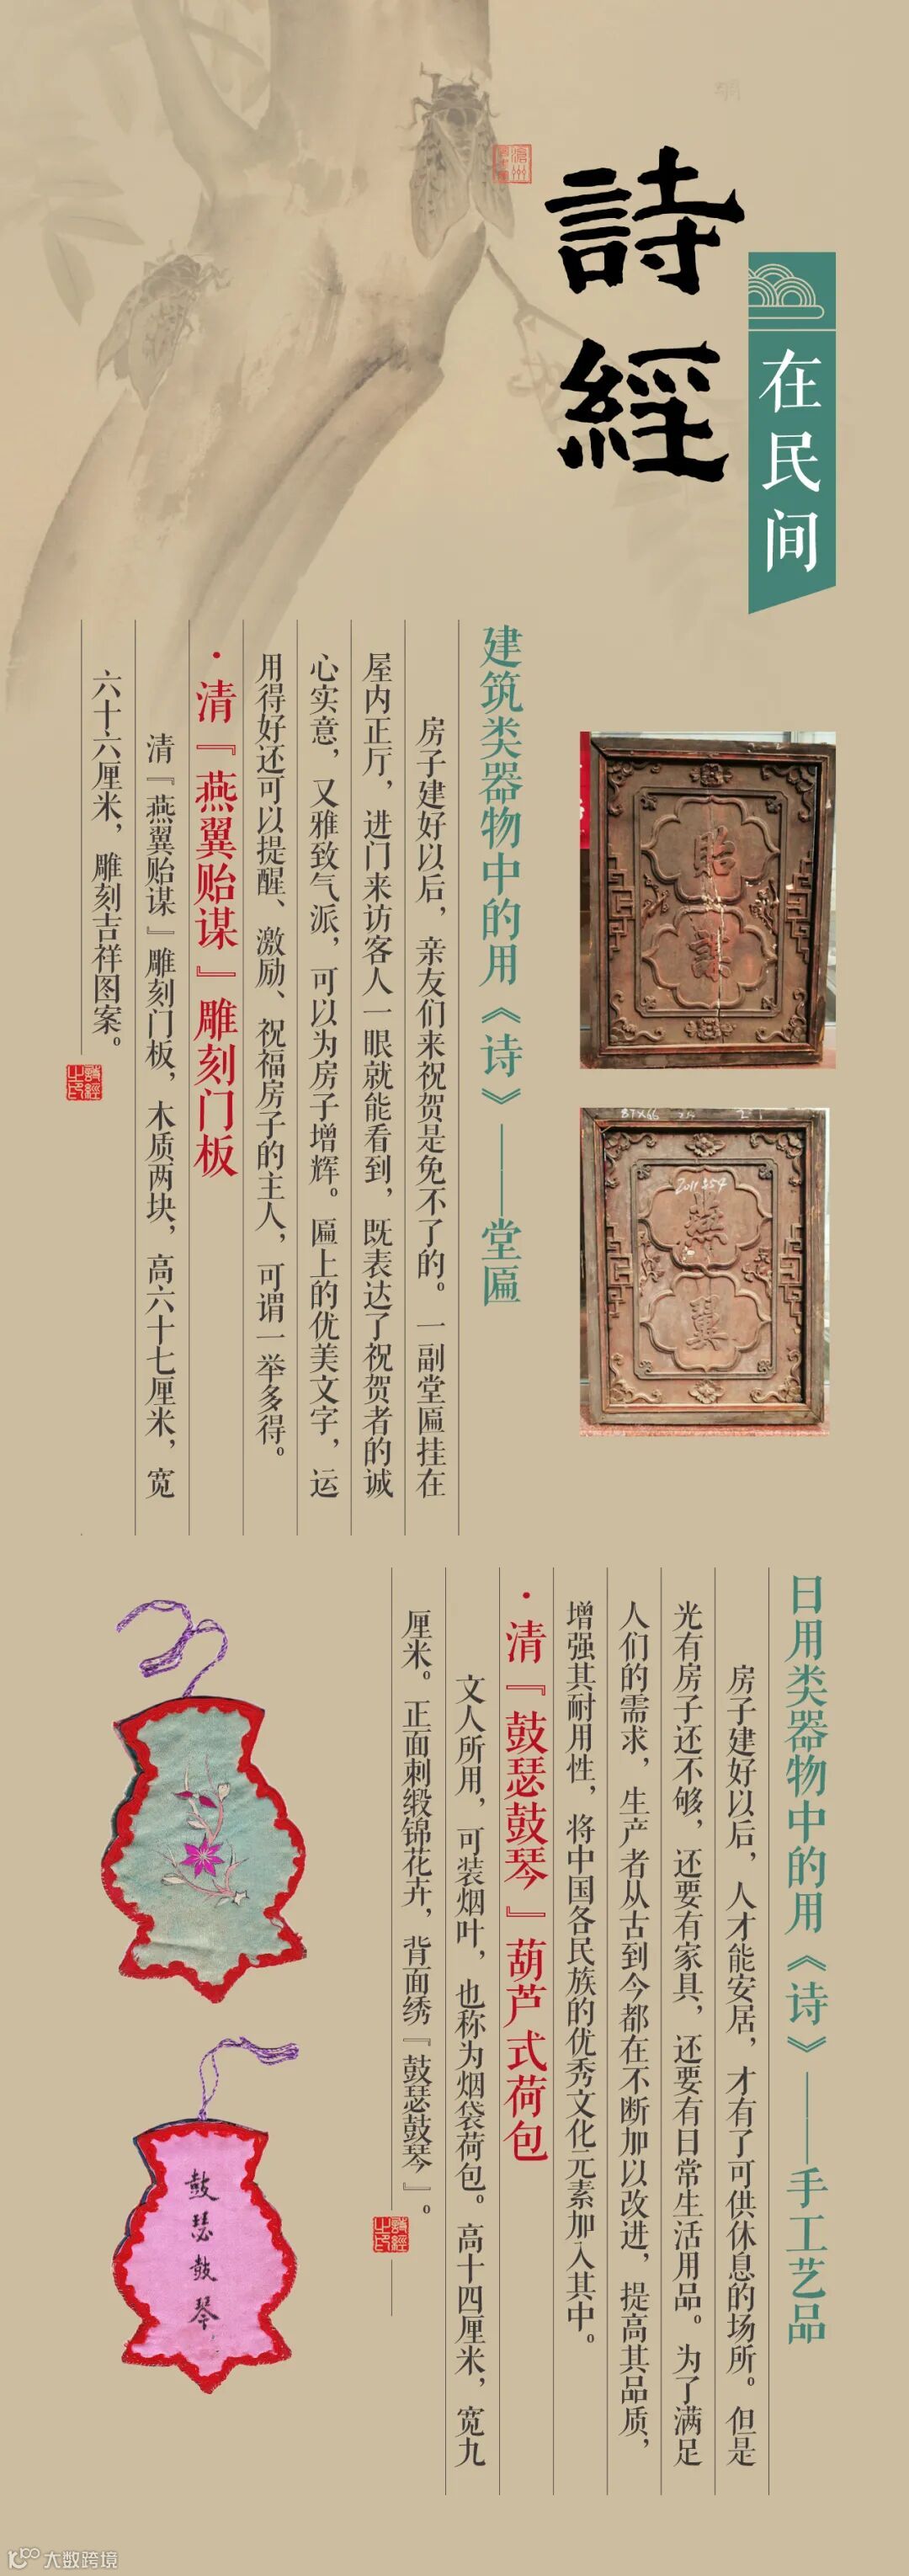 詩經
在民间
建筑类器物中的用《诗》——堂匾
房子建好以后，亲友们来祝贺是免不了的。一副堂匾挂在
屋内正厅，进门来访客人一眼就能看到，既表达了祝贺者的诚
心实意，又雅致气派，可以为房子增辉。匾上的优美文字，运
用得好还可以提醒、激励、祝福房子的主人，可谓一举多得。
·清『燕翼贻谋』雕刻门板
清『燕翼贻谋』雕刻门板，木质两块，高六十七厘米，宽
六十六厘米，雕刻吉祥图案。
詩經之印
貽謀
87×66
燕翼
日用类器物中的用《诗》——手工艺品
房子建好以后，人才能安居，才有了可供休息的场所。但是
光有房子还不够，还要有家具，还要有日常生活用品。为了满足
人们的需求，生产者从古到今都在不断加以改进，提高其品质，
增强其耐用性，将中国各民族的优秀文化元素加入其中。
·清『鼓瑟鼓琴』葫芦式荷包
文人所用，可装烟叶，也称为烟袋荷包。高十四厘米，宽九
厘米。正面刺缎锦花卉，背面绣『鼓瑟鼓琴』。
詩經之印
鼓瑟鼓琴
大数跨境